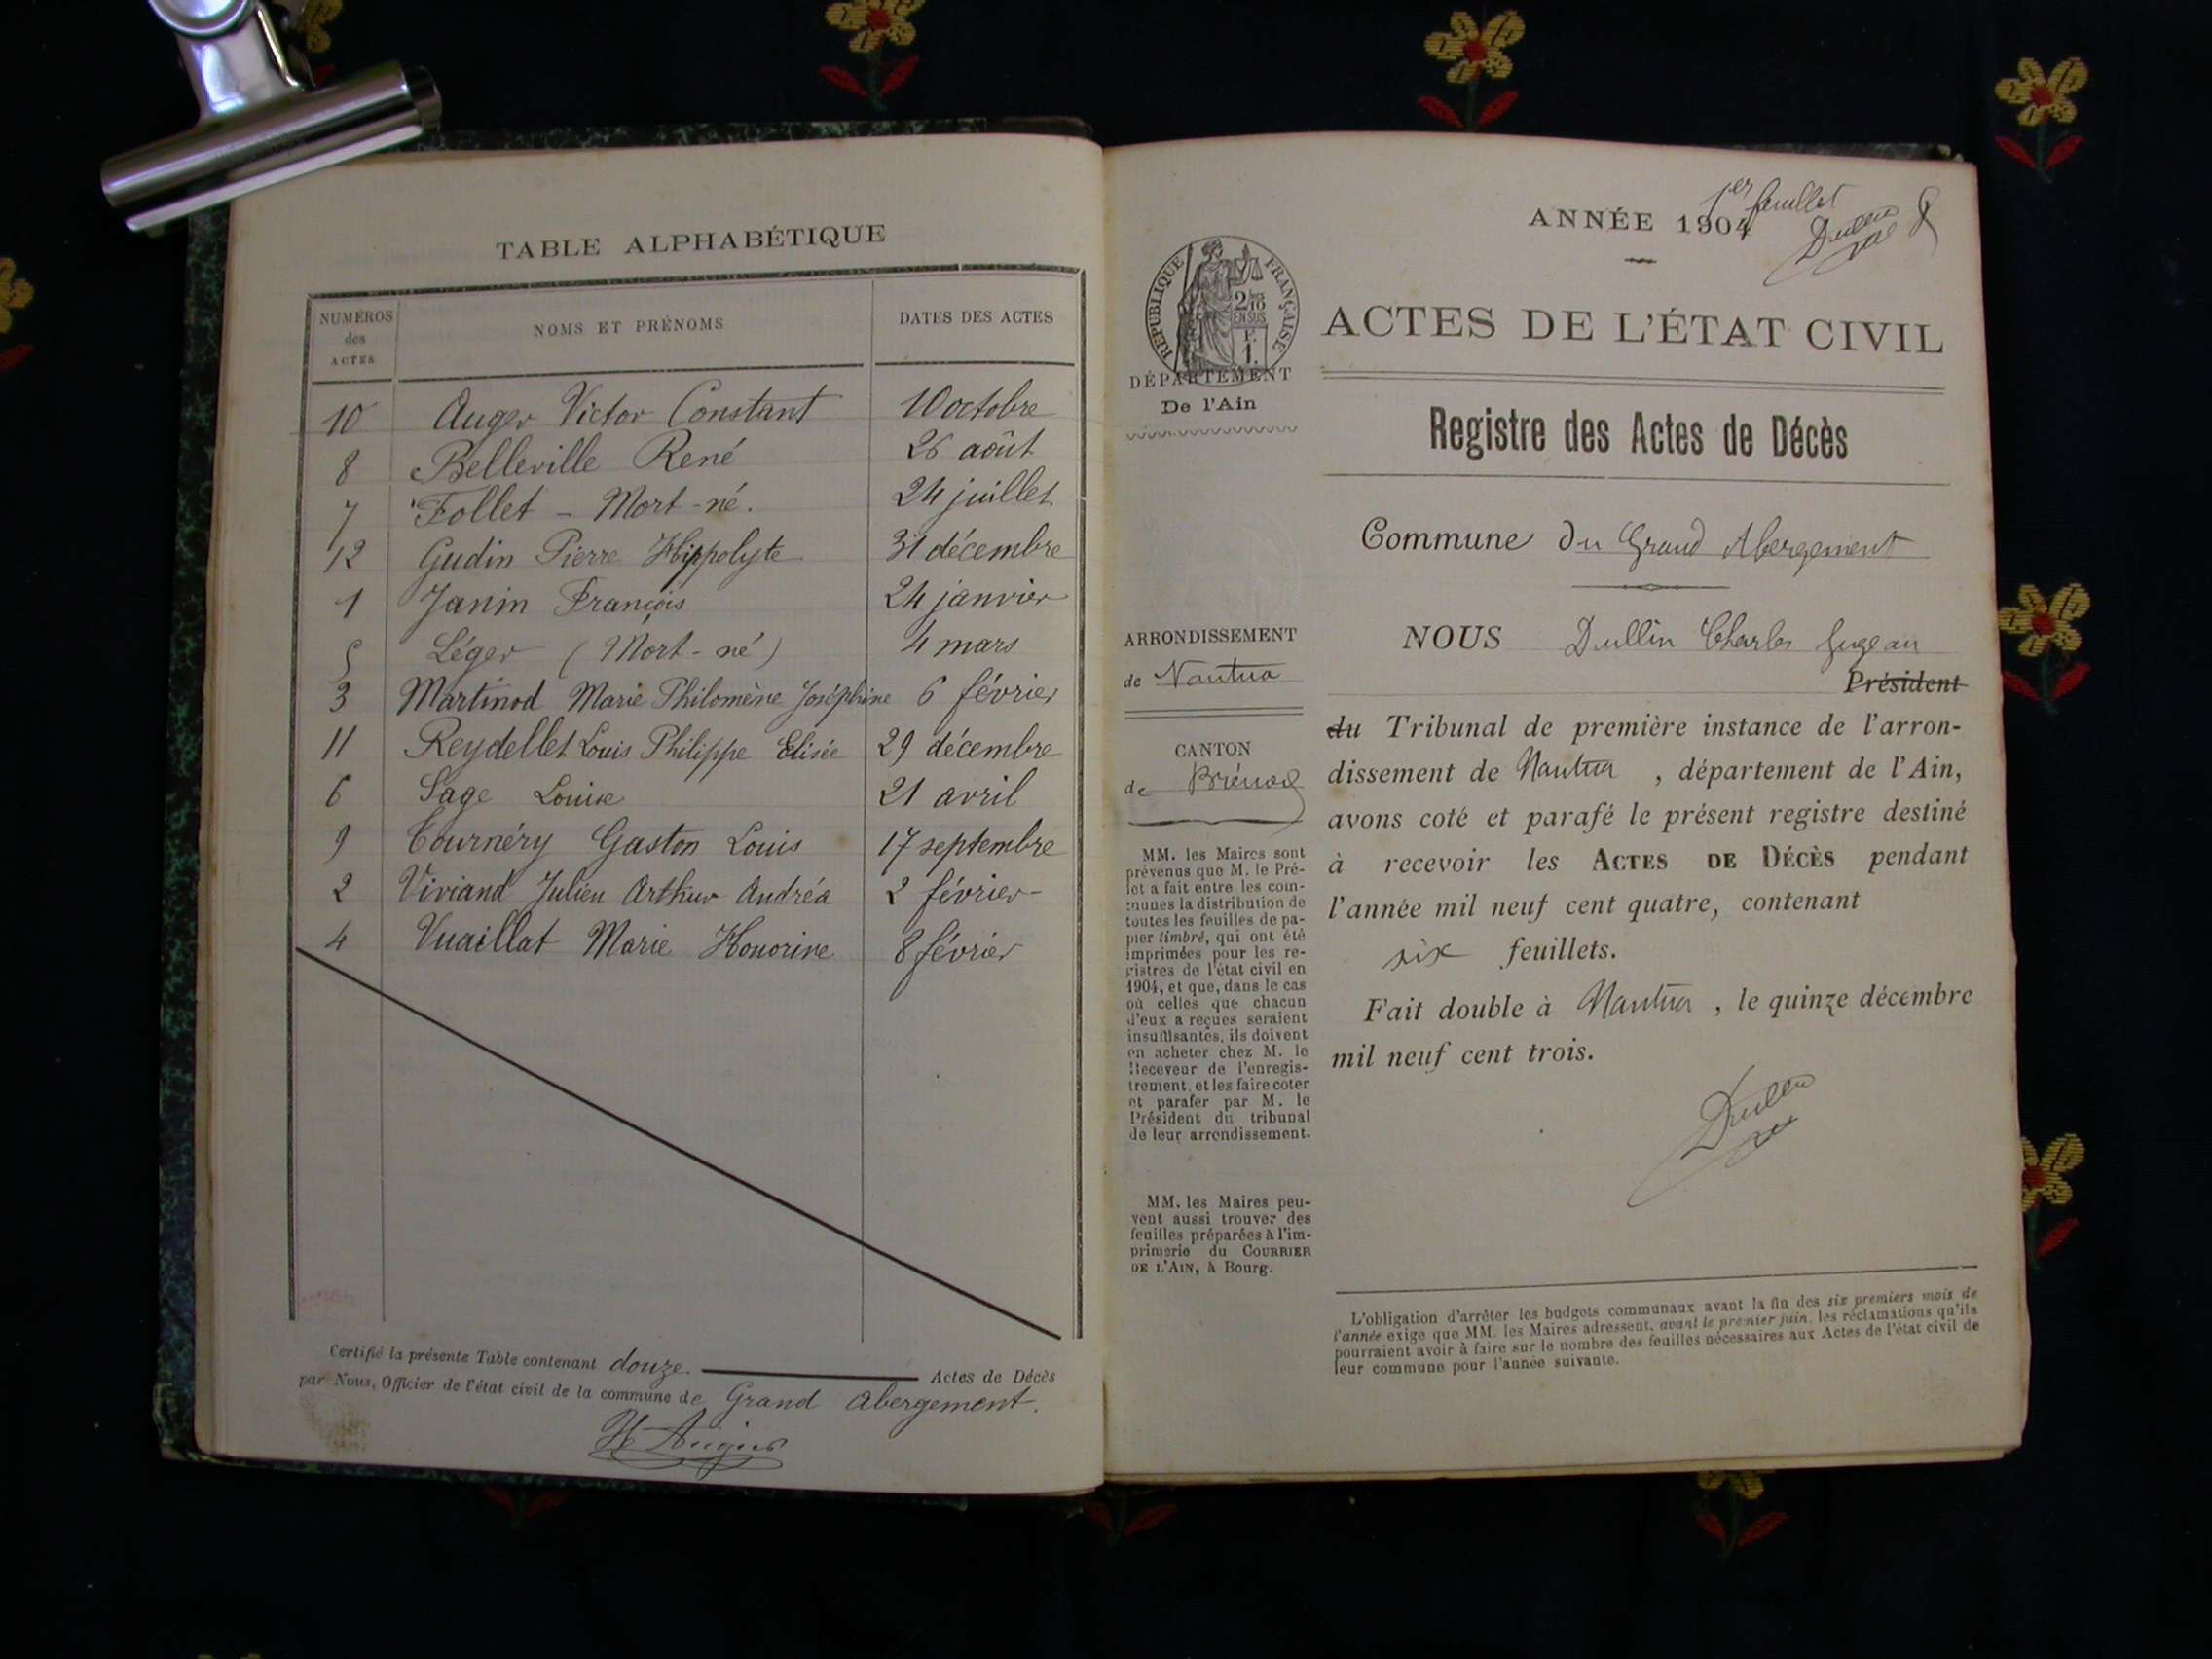 TABLE ALPHABÉTIQUE
NUMÉROS des ACTES NOMS ET PRÉNOMS DATES DES ACTES
10 Auger Victor Constant 10 octobre
8 Belleville René 26 août
7 Follet - Mort-né. 24 juillet
12 Gudin Pierre Hippolyte 31 décembre
1 Janin François 24 janvier
5 Léger (Mort-né) 4 mars
3 Martinod Marie Philomène Joséphine 6 février
11 Reydellet Louis Philippe Elisée 29 décembre
6 Sage Louise 21 avril
9 Tournéry Gaston Louis 17 septembre
2 Viviand Julien Arthur Andréa 2 février
4 Vuaillat Marie Honorine 8 février
Certifié la présente Table contenant douze Actes de Décès
par Nous, Officier de l'état civil de la commune de Grand Abergement.
1er feuillet
ANNÉE 1904
Dullin
RÉPUBLIQUE FRANÇAISE
2/10
EN SUS
F.
1.
DÉPARTEMENT
De l'Ain
ACTES DE L'ÉTAT CIVIL
Registre des Actes de Décès
Commune du Grand Abergement
ARRONDISSEMENT
de Nantua
CANTON
de Brénod
MM. les Maires sont
prévenus que M. le Pré-
fet a fait entre les com-
munes la distribution de
toutes les feuilles de pa-
pier timbré, qui ont été
imprimées pour les re-
gistres de l'état civil en
1904, et que, dans le cas
où celles que chacun
d'eux a reçues seraient
insuffisantes, ils doivent
en acheter chez M. le
Receveur de l'enregis-
trement, et les faire coter
et parafer par M. le
Président du tribunal
de leur arrondissement.
MM. les Maires peu-
vent aussi trouver des
feuilles préparées à l'im-
primerie du COURRIER
DE L'AIN, à Bourg.
NOUS Dullin Charles Juge au
Président
du Tribunal de première instance de l'arron-
dissement de Nantua, département de l'Ain,
avons coté et parafé le présent registre destiné
à recevoir les ACTES DE DÉCÈS pendant
l'année mil neuf cent quatre, contenant
six feuillets.
Fait double à Nantua, le quinze décembre
mil neuf cent trois.
Dullin
L'obligation d'arrêter les budgets communaux avant la fin des six premiers mois de
l'année exige que MM. les Maires adressent, avant le premier juin, les réclamations qu'ils
pourraient avoir à faire sur le nombre des feuilles nécessaires aux Actes de l'état civil de
leur commune pour l'année suivante.